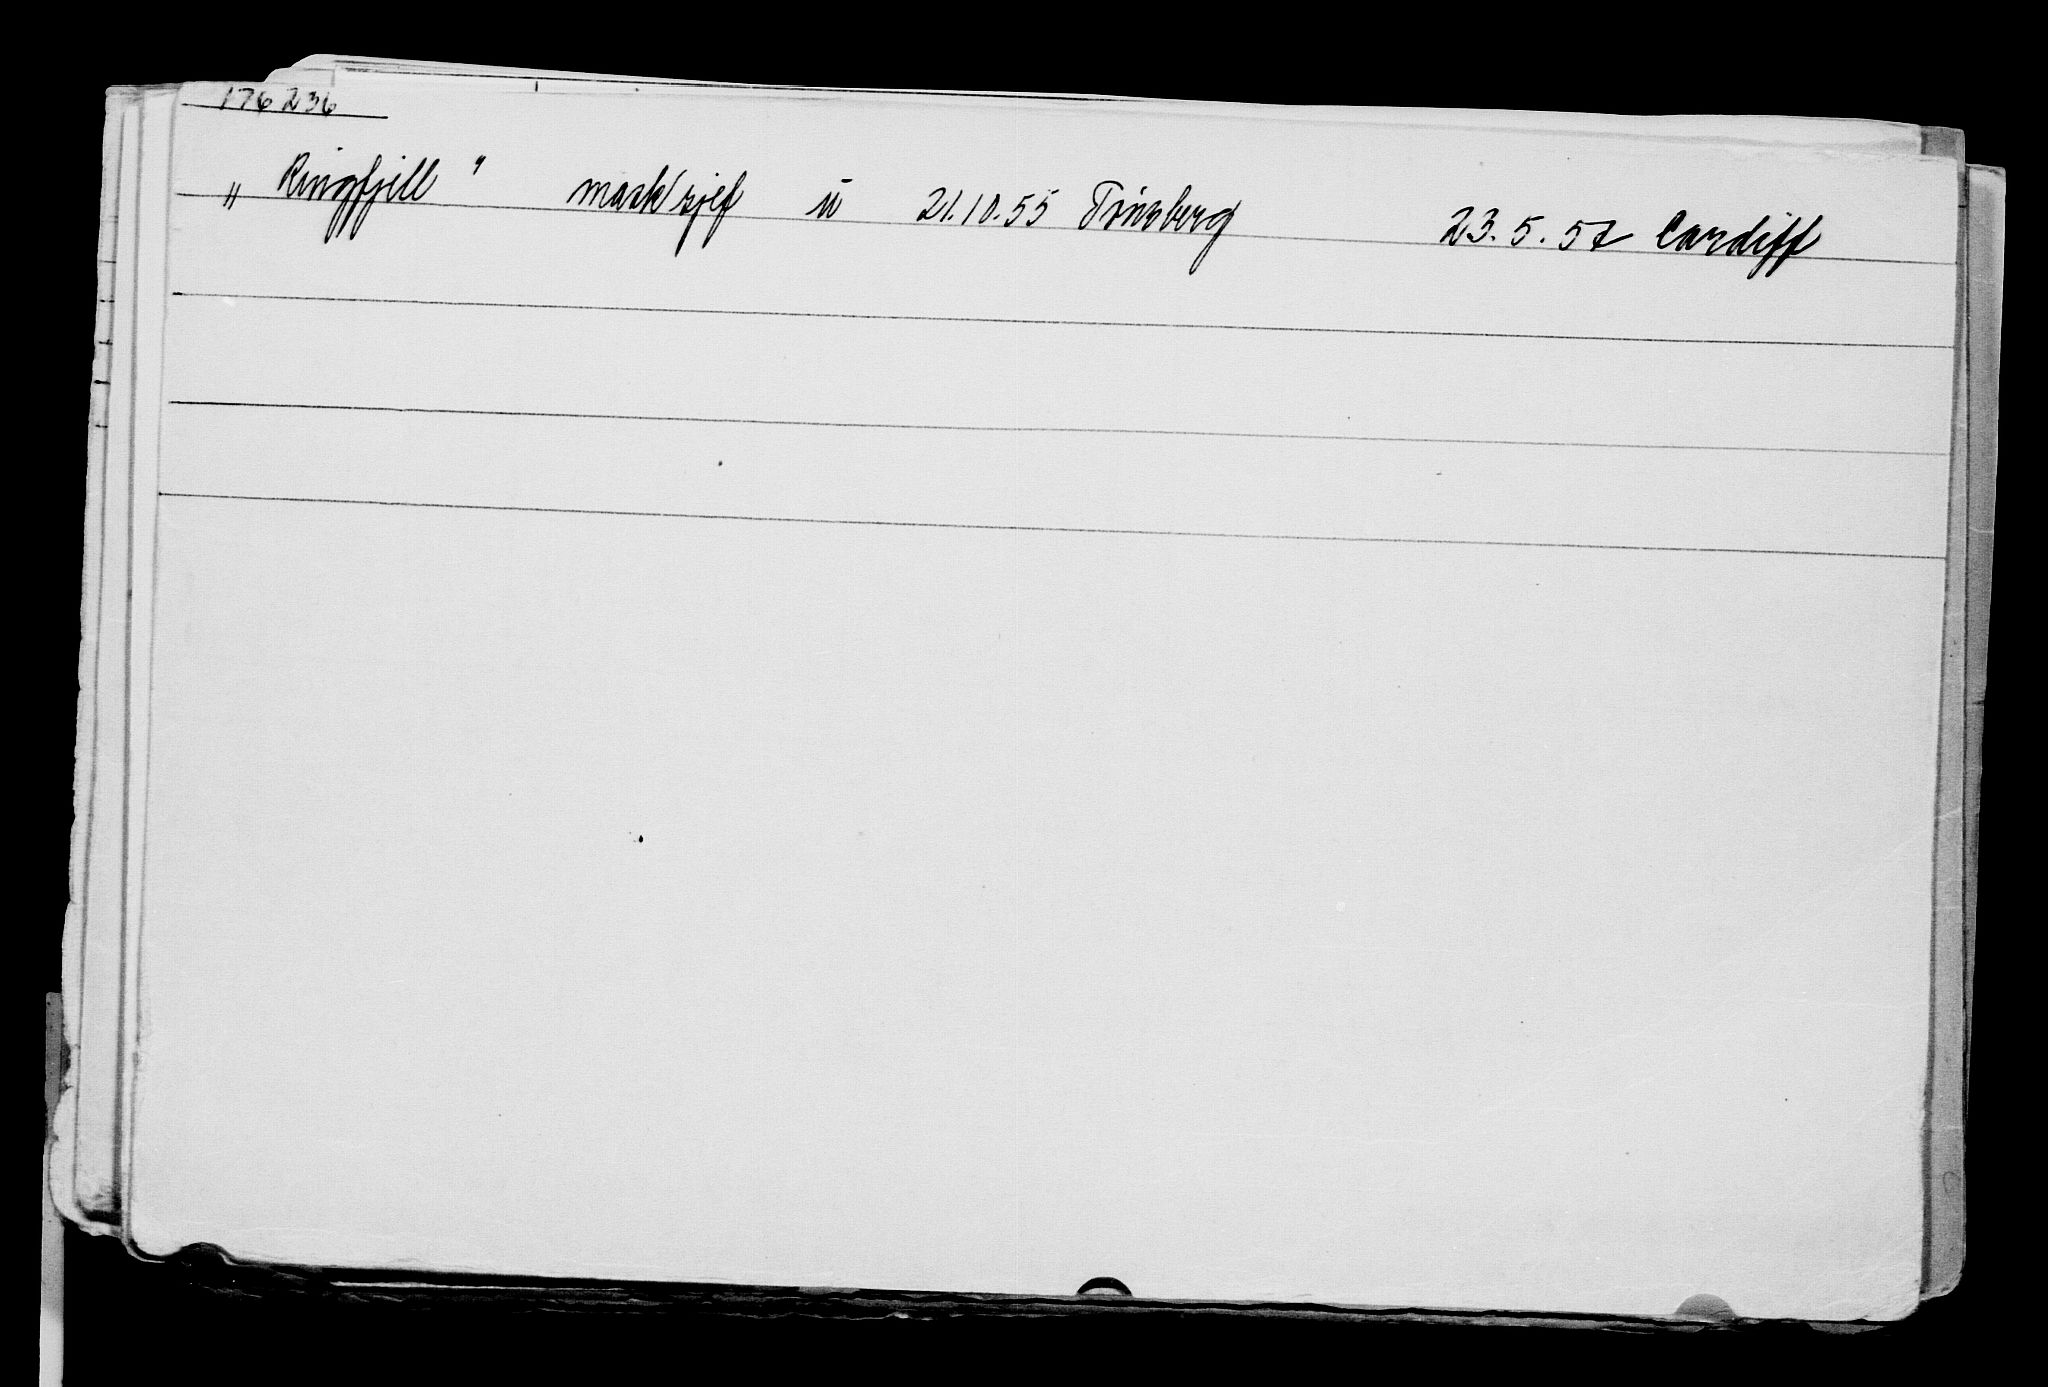 176236
„Ringfjell" mask sjef u 21.10.55 Tønsberg 23.5.57 Cardiff